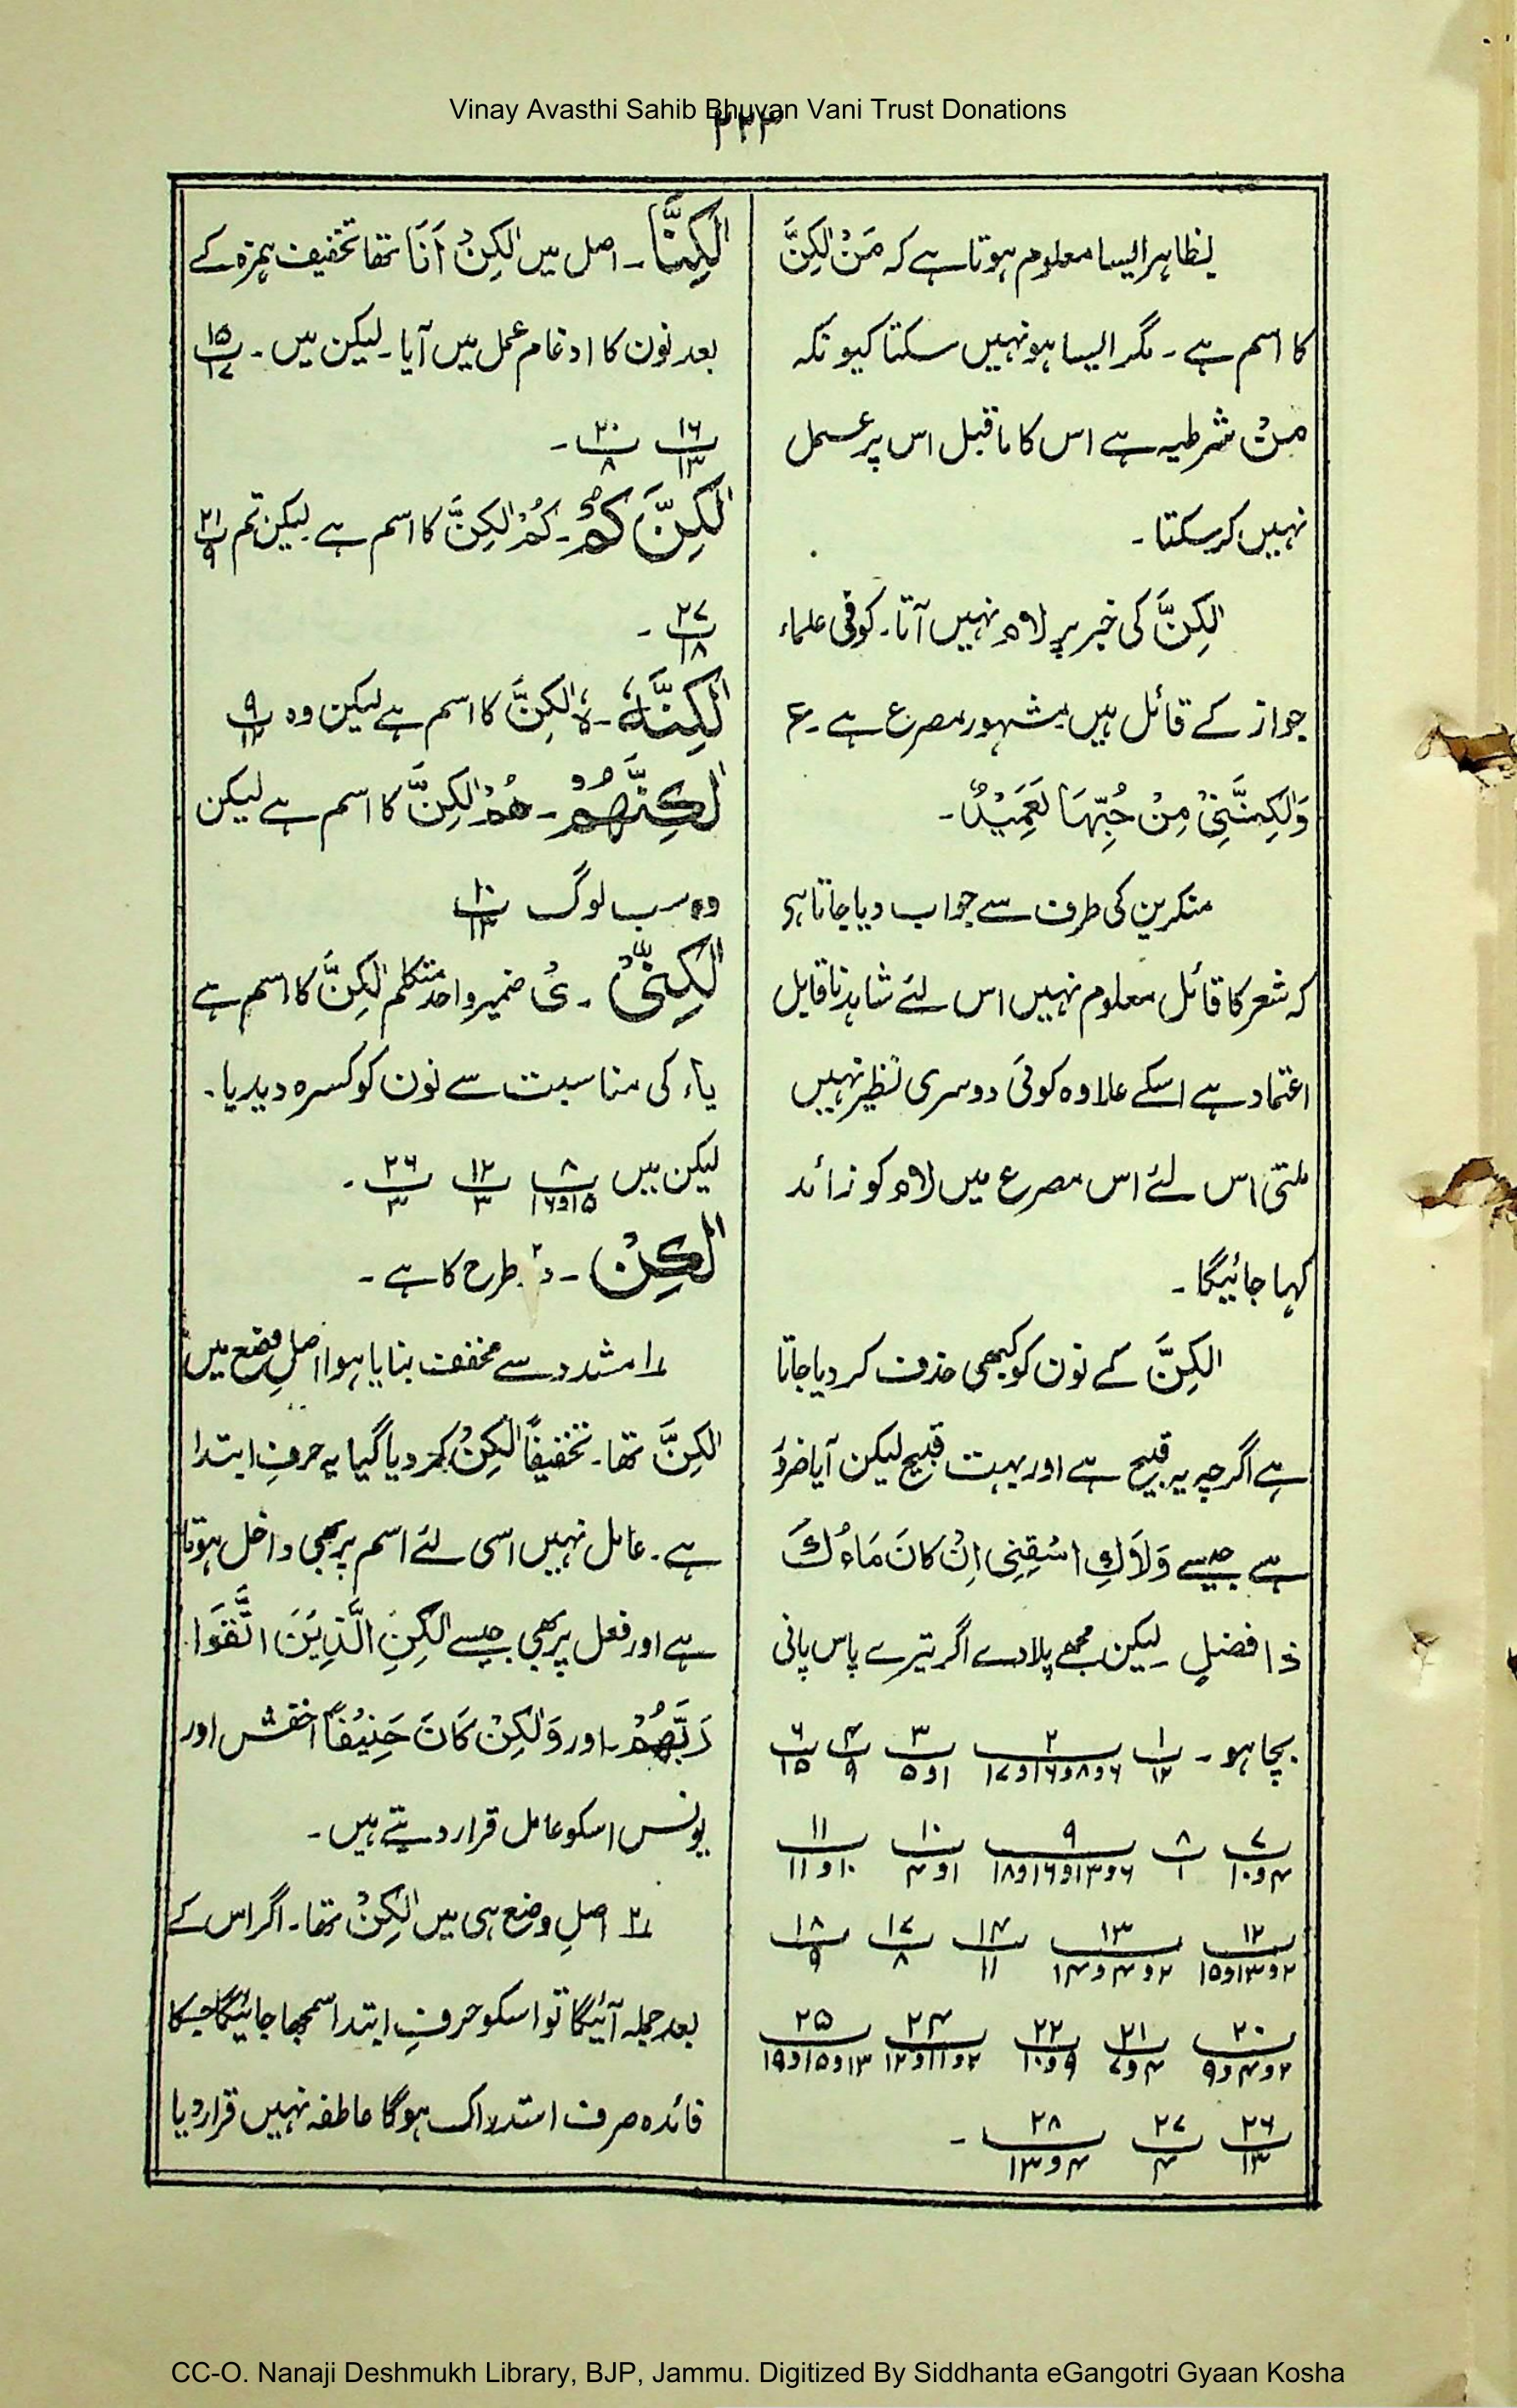 Vinay Avasthi Sahib Bhuvan Vani Trust Donations
۲۲۴
بظاہر ایسا معلوم ہوتا ہے کہ مَنْ لٰکِنَّ
کا اسم ہے۔ مگر ایسا ہو نہیں سکتا کیونکہ
مَنْ شرطیہ ہے اس کا ماقبل اس پر عمل
نہیں کر سکتا۔
لٰکِنَّ کی خبر پر لام نہیں آتا۔ کوفی علماء
جواز کے قائل ہیں مشہور مصرع ہے۔ ع
وَلٰکِنَّنِیْ مِنْ حُبِّهَا لَعَمِیْدٌ۔
منکرین کی طرف سے جواب دیا جاتا ہی
کہ شعر کا قائل معلوم نہیں اس لئے شاہد ناقابل
اعتماد ہے اسکے علاوہ کوئی دوسری نظیر نہیں
ملتی اس لئے اس مصرع میں لام کو زائد
کہا جائیگا۔
لٰکِنَّ کے نون کو کبھی حذف کر دیا جاتا
ہے اگرچہ یہ قبیح ہے اور بہت قبیح لیکن آیا ضرور
ہے جیسے وَلَاكِ اسْقِنِی اِنْ کَانَ مَاءُكَ
ذا فضلٍ لیکن مجھے پلادے اگر تیرے پاس پانی
بچا ہو۔ ۱/۱۲ ۲/۶و۸و۱۶و۱۷ ۳/۱و۵ ۴/۹ ۶/۱۵
۷/۴و۱۰ ۸/۱ ۹/۶و۱۳و۱۶و۱۸ ۱۰/۱و۴ ۱۱/۱۰و۱۱
۱۲/۲و۱۳و۱۵ ۱۳/۲و۴و۱۴ ۱۴/۱۱ ۱۷/۸ ۱۸/۹
۲۰/۲و۴و۹ ۲۱/۴و۷ ۲۲/۹و۱۰ ۲۴/۲و۱۱و۱۲ ۲۵/۱۳و۱۵و۱۹
۲۶/۱۳ ۲۷/۴ ۲۸/۴و۱۳۔
لٰکِنَّا۔ اصل میں لٰکِنْ اَنَا تھا تخفیف ہمزہ کے
بعد نون کا ادغام عمل میں آیا۔ لیکن میں۔ ۱۵/۱۷
۱۶/۱۳ ۲۰/۸۔
لٰکِنَّ کُمْ۔ کُمْ لٰکِنَّ کا اسم ہے۔ لیکن تم ۲۱/۹
۲۷/۱۸۔
لٰکِنَّہٗ۔ ہٗ لٰکِنَّ کا اسم ہے لیکن وہ ۹/۱۲
لٰکِنَّهُمْ۔ هُمْ لٰکِنَّ کا اسم ہے لیکن
وہ سب لوگ ۱۰/۱۳
لٰکِنِّیْ۔ یْ ضمیر واحد متکلم لٰکِنَّ کا اسم ہے
یاء کی مناسبت سے نون کو کسرہ دیدیا۔
لیکن میں ۸/۱۵و۱۶ ۱۲/۳ ۲۶/۳۔
لٰکِنْ۔ دو طرح کا ہے۔
۱ مشدد سے مخفف بنایا ہوا اصلِ وضع میں
لٰکِنَّ تھا۔ تخفیفاً لٰکِنْ کر دیا گیا یہ حرفِ ابتدا
ہے۔ عامل نہیں اسی لئے اسم پر بھی داخل ہوتا
ہے اور فعل پر بھی جیسے لٰکِنِ الَّذِیْنَ اتَّقَوْا
رَبَّهُمْ۔ اور وَلٰکِنْ کَانَ حَنِیْفًا اخفش اور
یونس اسکو عامل قرار دیتے ہیں۔
۲ اصلِ وضع ہی میں لٰکِنْ تھا۔ اگر اس کے
بعد جملہ آئیگا تو اسکو حرفِ ابتدا سمجھا جائیگا جسکا
فائدہ صرف استدراک ہوگا عاطفہ نہیں قرار دیا
CC-O. Nanaji Deshmukh Library, BJP, Jammu. Digitized By Siddhanta eGangotri Gyaan Kosha